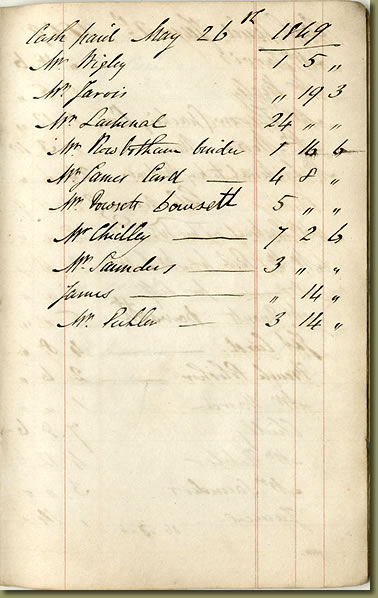 Cash paid May 26th 1849
Mr Wigley 1 5 "
Mr Jarvis " 19 3
Mr Lachenal 24 " "
Mr Rowbotham binder 1 16 6
Mr James Card — 4 8 "
Mr Dowsett Dowsett 5 " "
Mr Chidley — 7 2 6
Mr Saunders — 3 " "
James — " 14 "
Mr Pichler — 3 14 "